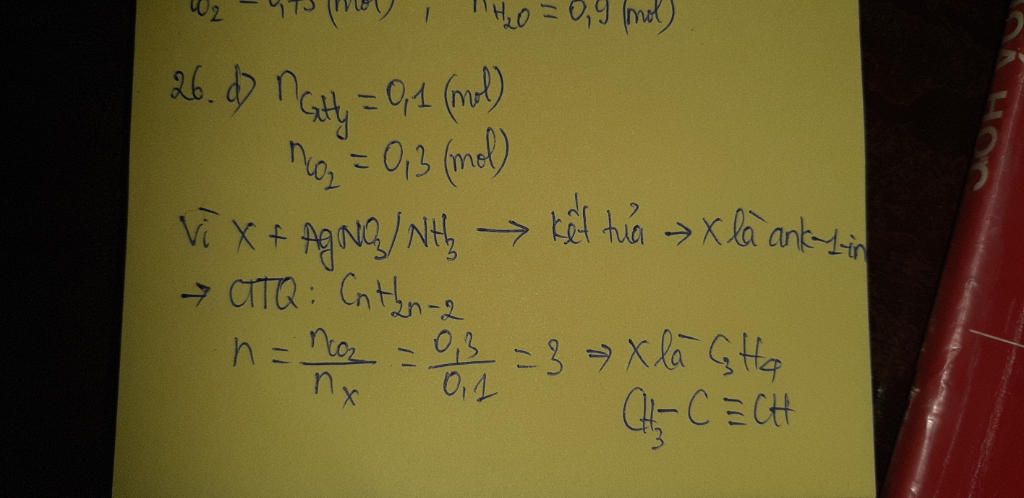 CO2 = 0,75 (mol) , nH2O = 0,9 (mol)
26. d) nCxHy = 0,1 (mol)
nCO2 = 0,3 (mol)
Vì X + AgNO3/NH3 → kết tủa → X là ank-1-in
→ CTTQ : CnH2n-2
n = nCO2/nX = 0,3/0,1 = 3 ⇒ X là C3H4
CH3-C≡CH
HỌC